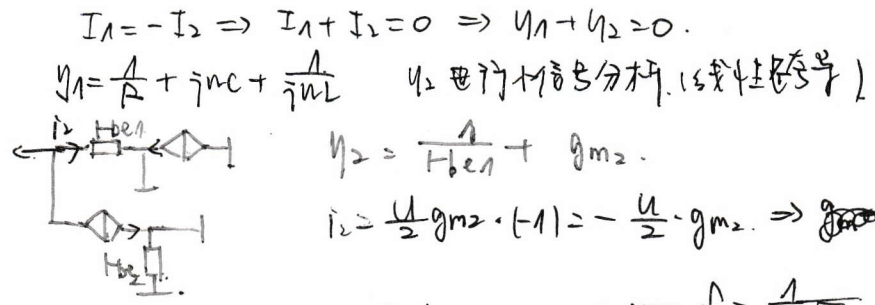 I1 = -I2 => I1 + I2 = 0 => y1 + y2 = 0.
y1 = 1/R + jwC + 1/jwL y2 进行小信号分析.
i2 rbe1 y2 = 1/rbe1 + gm2.
i2 = u/2 gm2 · (-1) = - u/2 · gm2. =>
rbe2